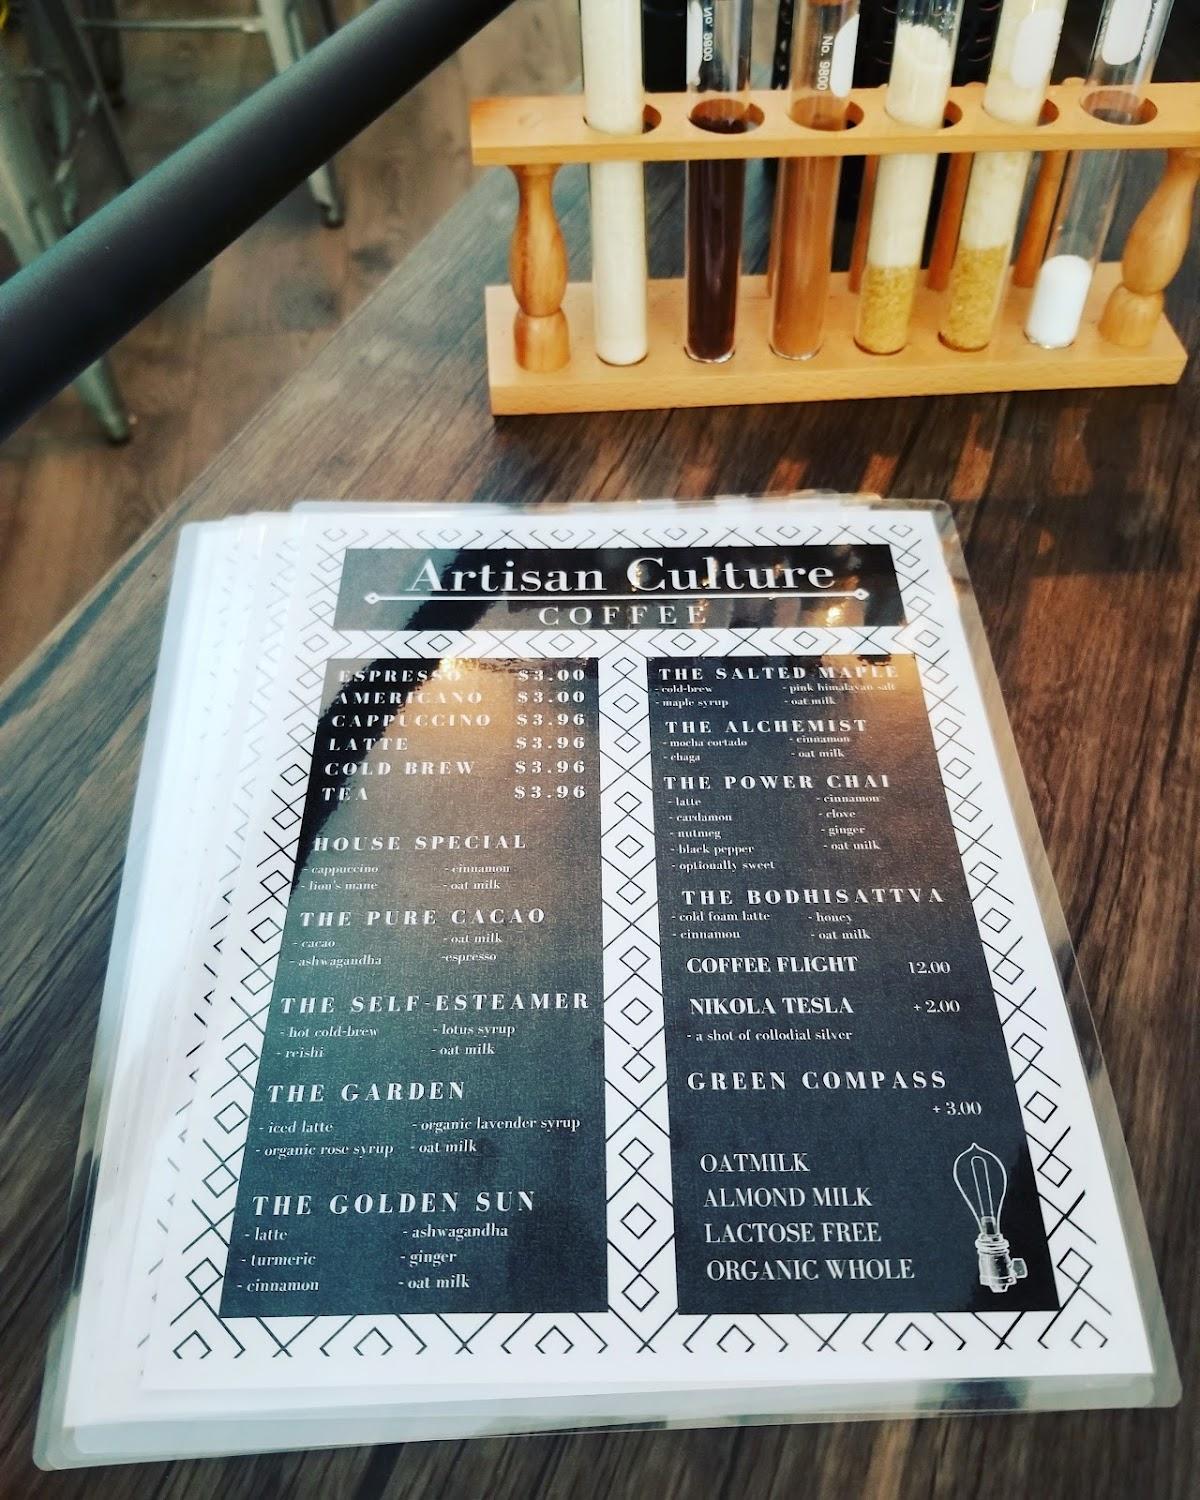 No. 8900
No. 9800
Artisan Culture
COFFEE
ESPRESSO $3.00
AMERICANO $3.00
CAPPUCCINO $3.96
LATTE $3.96
COLD BREW $3.96
TEA $3.96
HOUSE SPECIAL
- cappuccino - cinnamon
- lion's mane - oat milk
THE PURE CACAO
- cacao - oat milk
- ashwagandha -espresso
THE SELF-ESTEAMER
- hot cold-brew - lotus syrup
- reishi - oat milk
THE GARDEN
- iced latte - organic lavender syrup
- organic rose syrup - oat milk
THE GOLDEN SUN
- latte - ashwagandha
- turmeric - ginger
- cinnamon - oat milk
THE SALTED MAPLE
- cold-brew - pink himalayan salt
- maple syrup - oat milk
THE ALCHEMIST
- mocha cortado - cinnamon
- chaga - oat milk
THE POWER CHAI
- latte - cinnamon
- cardamon - clove
- nutmeg - ginger
- black pepper - oat milk
- optionally sweet
THE BODHISATTVA
- cold foam latte - honey
- cinnamon - oat milk
COFFEE FLIGHT 12.00
NIKOLA TESLA + 2.00
- a shot of collodial silver
GREEN COMPASS
+ 3.00
OATMILK
ALMOND MILK
LACTOSE FREE
ORGANIC WHOLE